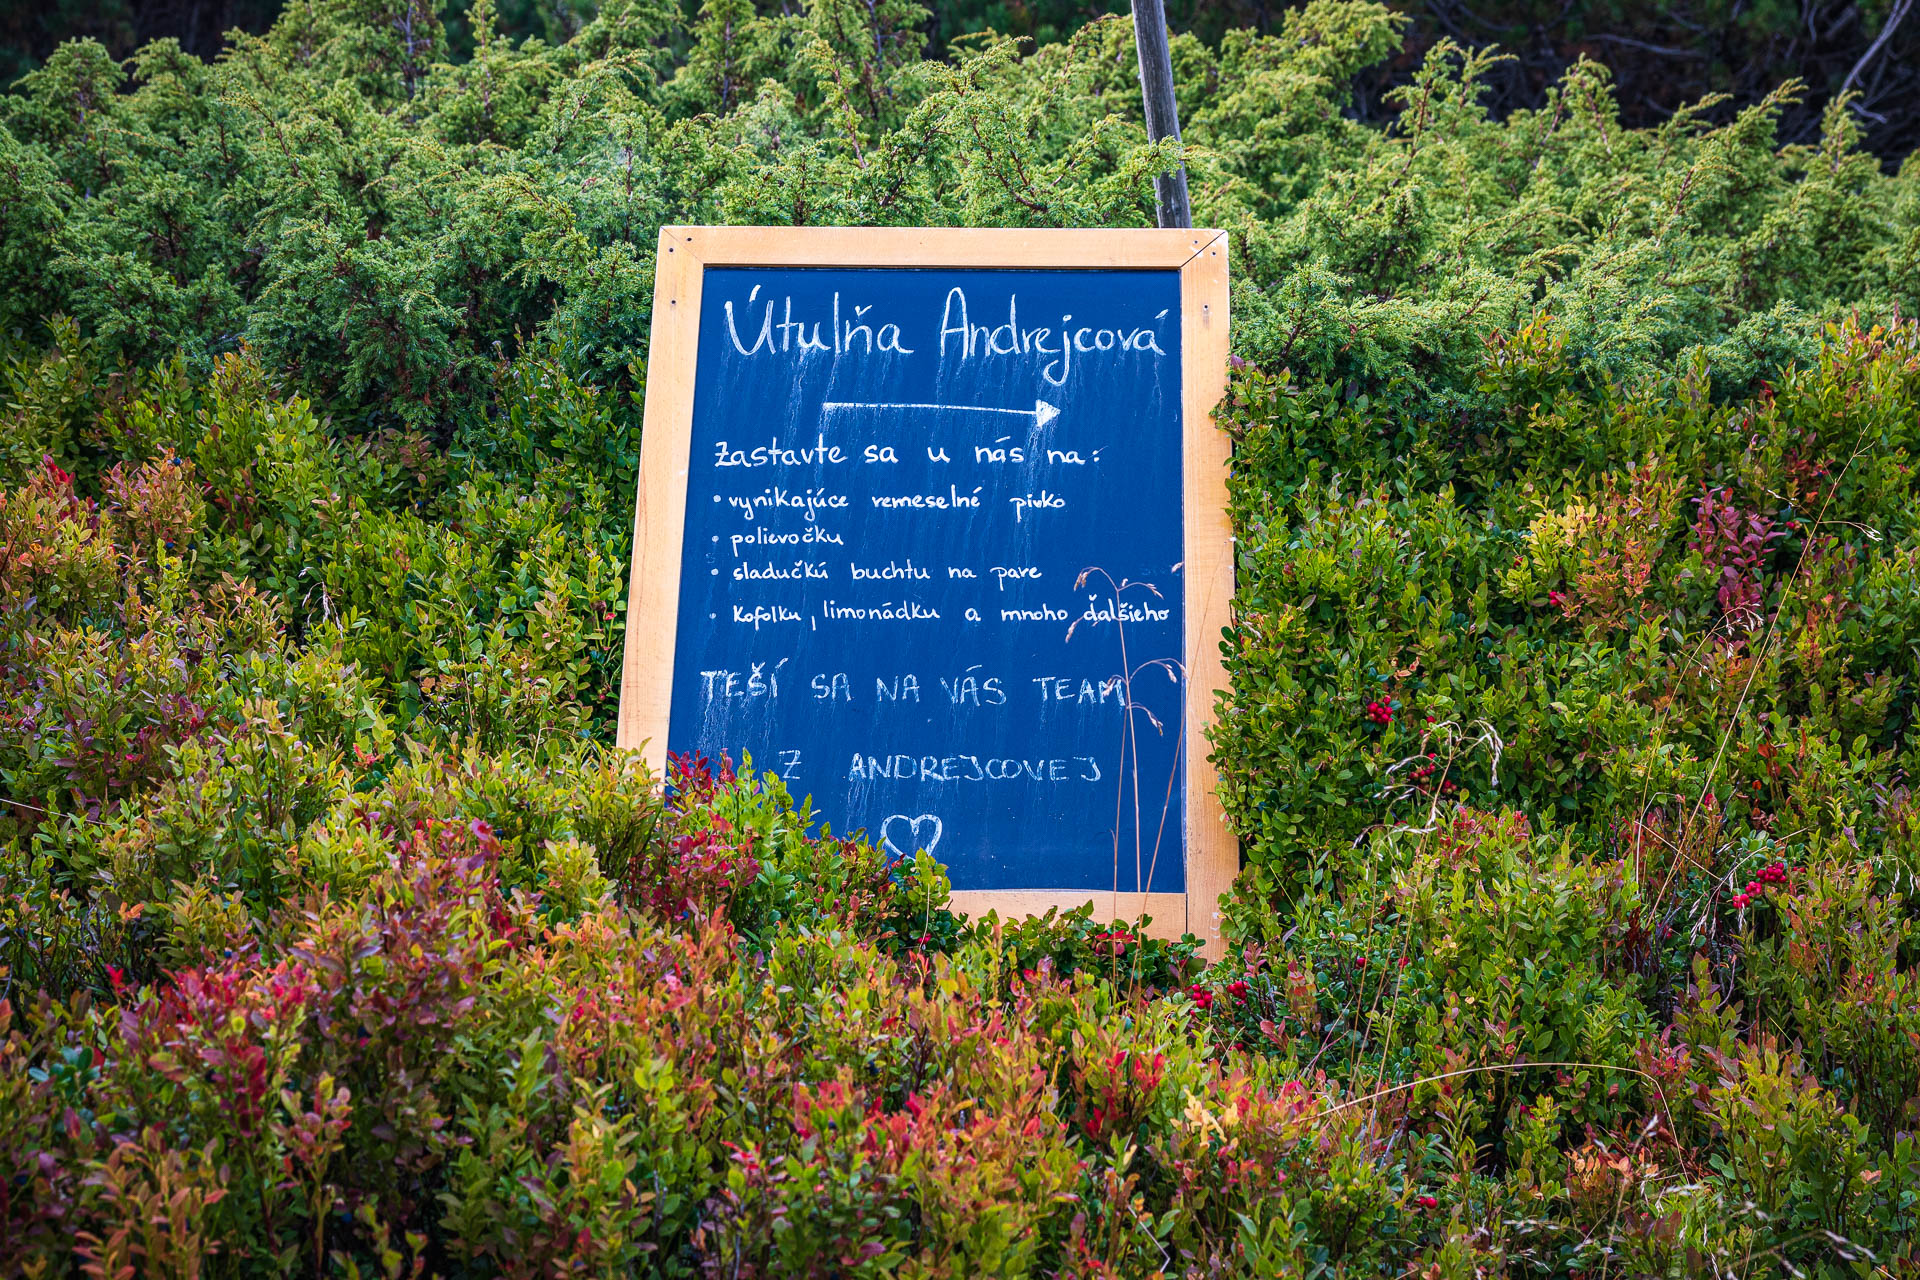 Útulňa Andrejcová
Zastavte sa u nás na:
• vynikajúce remeselné pivko
• polievočku
• sladučkú buchtu na pare
• kofolku, limonádku a mnoho ďalšieho
TEŠÍ SA NA VÁS TEAM
Z ANDREJCOVEJ